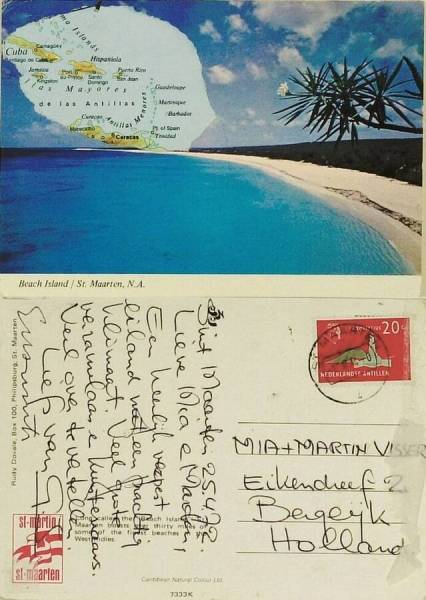 Islands
Cuba
Camagüey
Santiago de Cuba
Hispaniola
Jamaica
Port au-Prince
Santo Domingo
Puerto Rico
San Juan
Kingston
las Mayores
de las Antillas
Guadeloupe
Martinique
Barbados
Antillas Menores
Curaçao
Maracaibo
Caracas
Pt. of Spain
Trinidad
Beach Island / St. Maarten, N.A.
Sint Maarten 25.4.92.
Lieve Mia e Martin,
Een heerlijk verpest
eiland met een prachtig
klimaat. Veel grote
verzamelaars e kunstenaars.
Veel over te vertellen
Liefs van
Rudy Dovale, Box 100, Philipsburg, St. Maarten
st-martin
st-maarten
called the Beach Island
Maarten boasts over thirty miles of
some of the finest beaches in the
West Indies.
Caribbean Natural Colour Ltd.
7333K
20
NEDERLANDSE ANTILLEN
MIA+MARTIN VISSER
Eikendreef 2
Bergeijk
Holland